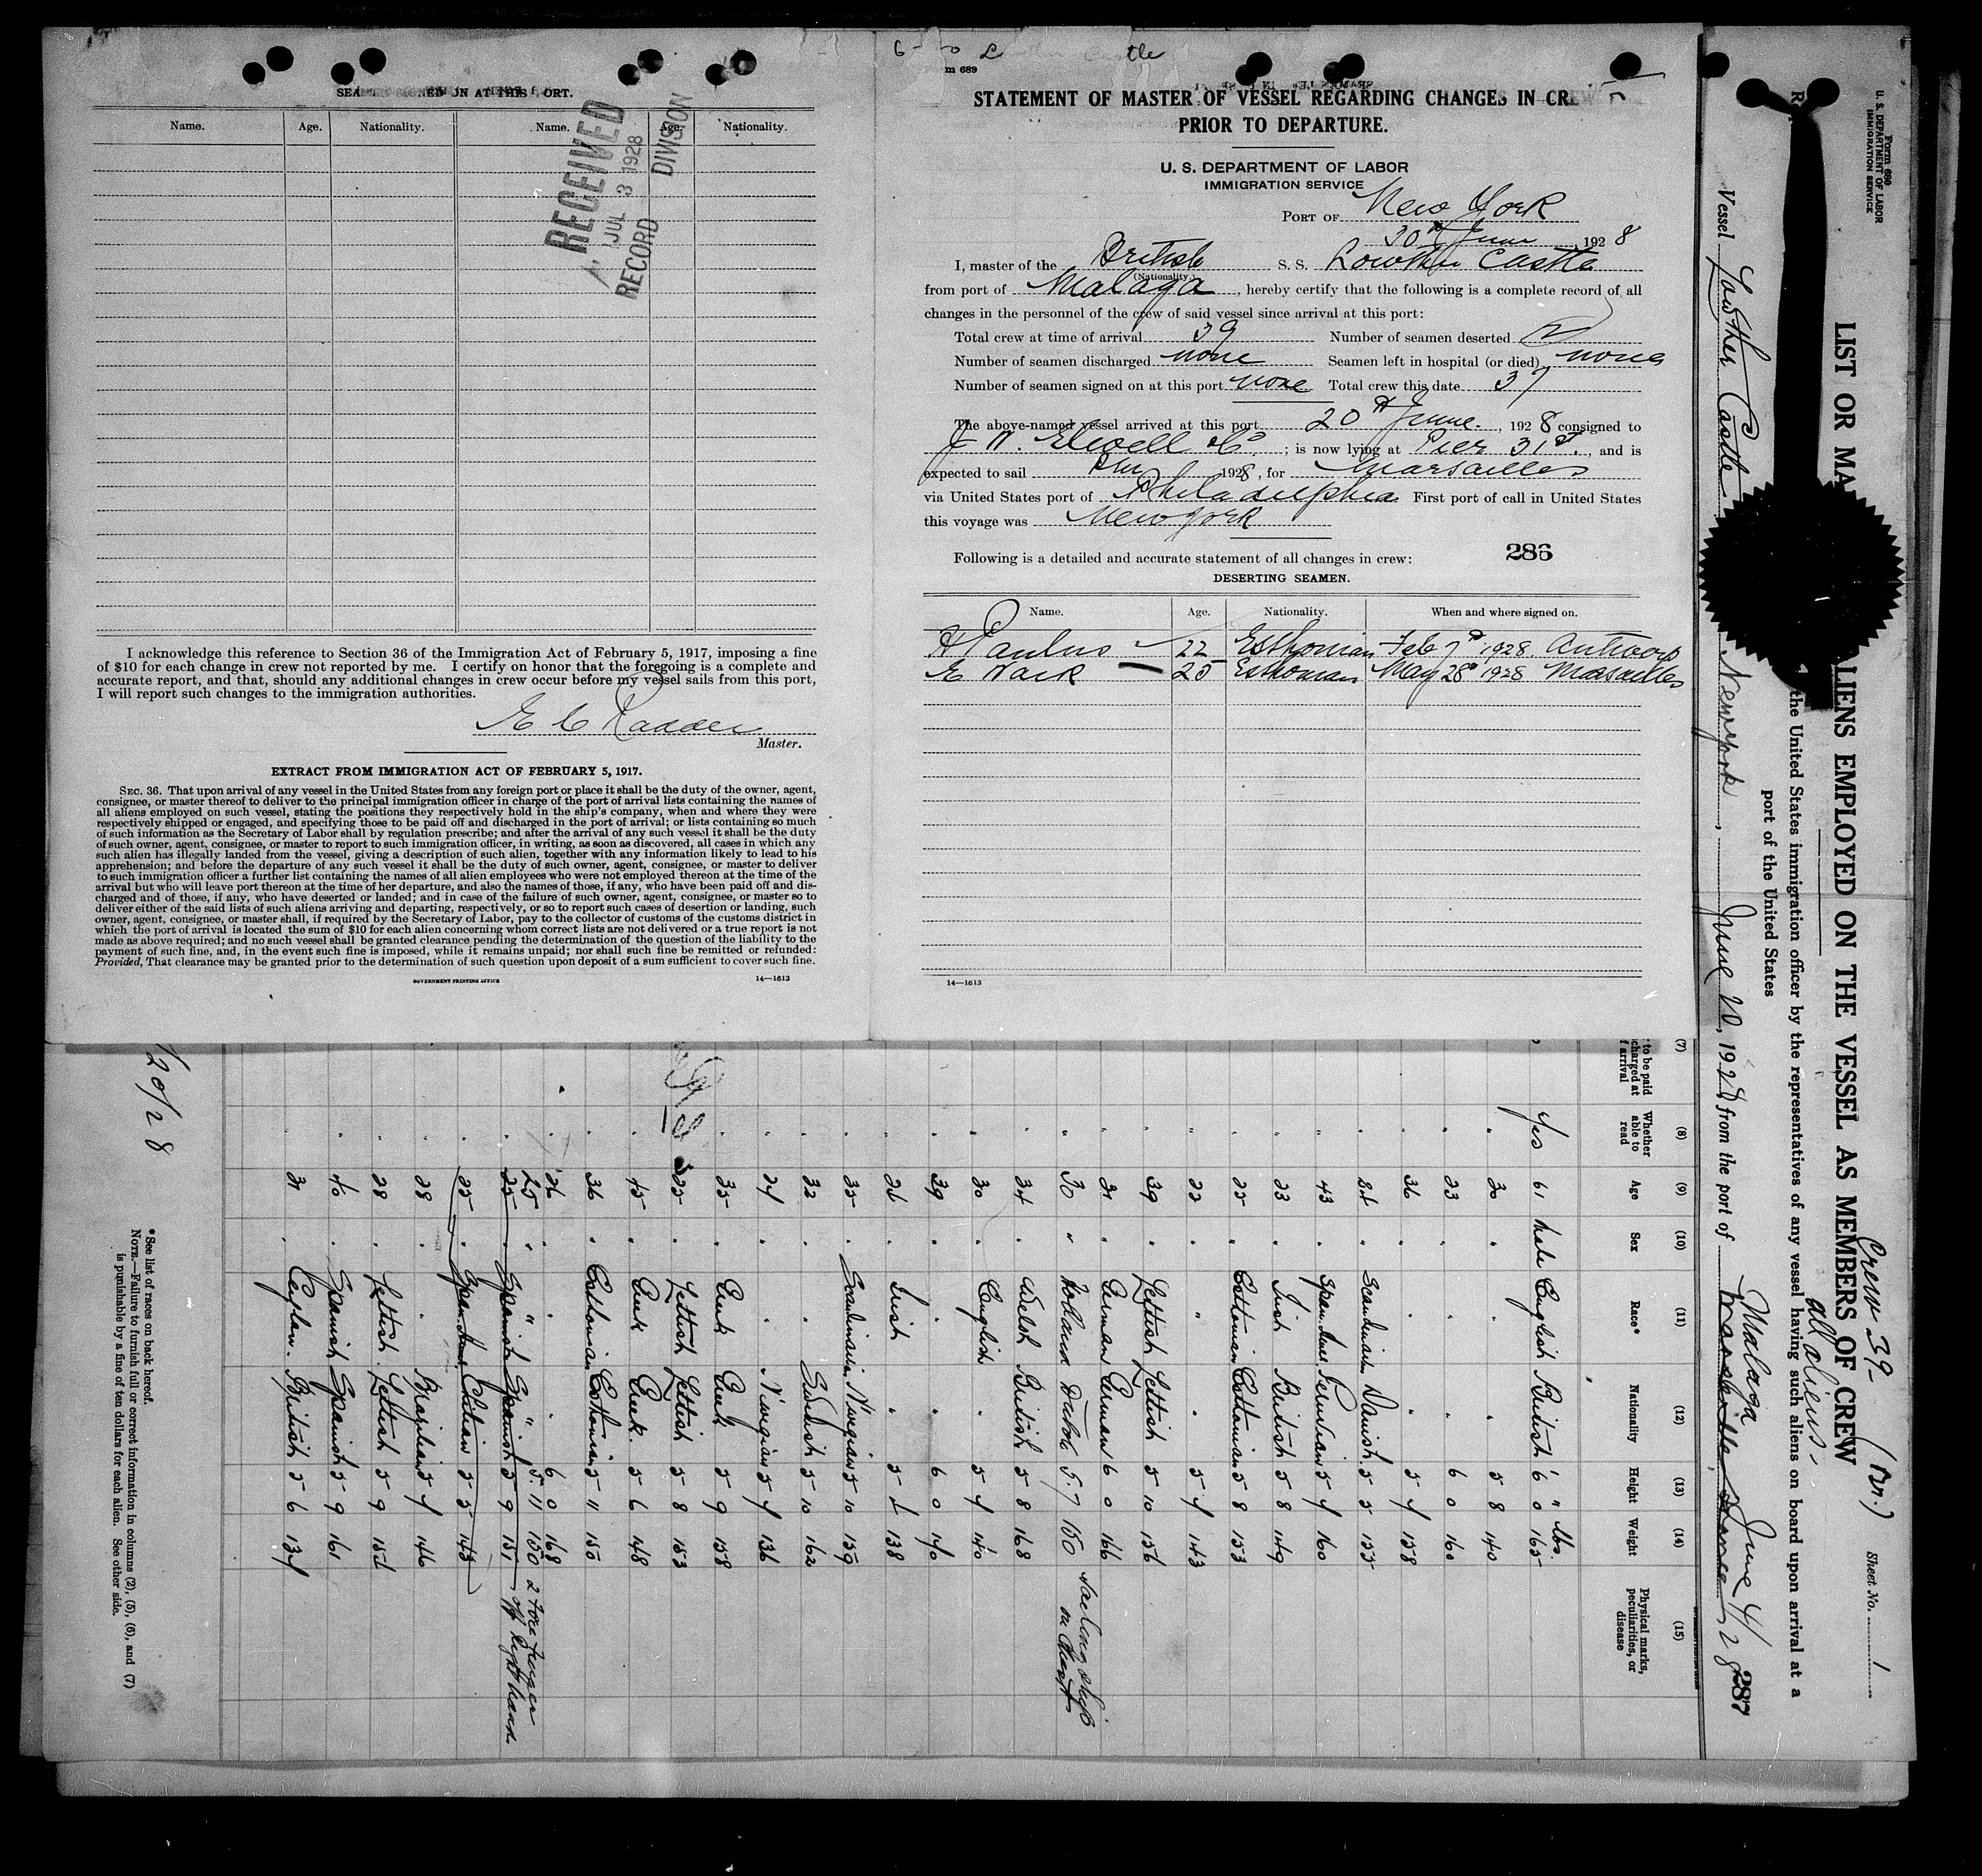 SEAMEN SIGNED ON AT THIS PORT.
Name. Age. Nationality. Name. Age. Nationality.
RECEIVED
JUL 3 1928
RECORD DIVISION
I acknowledge this reference to Section 36 of the Immigration Act of February 5, 1917, imposing a fine
of $10 for each change in crew not reported by me. I certify on honor that the foregoing is a complete and
accurate report, and that, should any additional changes in crew occur before my vessel sails from this port,
I will report such changes to the immigration authorities.
Master.
EXTRACT FROM IMMIGRATION ACT OF FEBRUARY 5, 1917.
SEC. 36. That upon arrival of any vessel in the United States from any foreign port or place it shall be the duty of the owner, agent,
consignee, or master thereof to deliver to the principal immigration officer in charge of the port of arrival lists containing the names of
all aliens employed on such vessel, stating the positions they respectively hold in the ship's company, when and where they were
respectively shipped or engaged, and specifying those to be paid off and discharged in the port of arrival; or lists containing so much
of such information as the Secretary of Labor shall by regulation prescribe; and after the arrival of any such vessel it shall be the duty
of such owner, agent, consignee, or master to report to such immigration officer, in writing, as soon as discovered, all cases in which any
such alien has illegally landed from the vessel, giving a description of such alien, together with any information likely to lead to his
apprehension; and before the departure of any such vessel it shall be the duty of such owner, agent, consignee, or master to deliver
to such immigration officer a further list containing the names of all alien employees who were not employed thereon at the time of the
arrival but who will leave port thereon at the time of her departure, and also the names of those, if any, who have been paid off and dis-
charged and of those, if any, who have deserted or landed; and in case of the failure of such owner, agent, consignee, or master so to
deliver either of the said lists of such aliens arriving and departing, respectively, or so to report such cases of desertion or landing, such
owner, agent, consignee, or master shall, if required by the Secretary of Labor, pay to the collector of customs of the customs district in
which the port of arrival is located the sum of $10 for each alien concerning whom correct lists are not delivered or a true report is not
made as above required; and no such vessel shall be granted clearance pending the determination of the question of the liability to the
payment of such fine, and, in the event such fine is imposed, while it remains unpaid; nor shall such fine be remitted or refunded:
Provided, That clearance may be granted prior to the determination of such question upon deposit of a sum sufficient to cover such fine.
GOVERNMENT PRINTING OFFICE 14—1613
m 689
STATEMENT OF MASTER OF VESSEL REGARDING CHANGES IN CRE
PRIOR TO DEPARTURE.
U. S. DEPARTMENT OF LABOR
IMMIGRATION SERVICE
PORT OF New York
30th June, 1928
I, master of the British S. S. Lowther Castle
(Nationality.)
from port of Malaga, hereby certify that the following is a complete record of all
changes in the personnel of the crew of said vessel since arrival at this port:
Total crew at time of arrival 39 Number of seamen deserted 2
Number of seamen discharged none Seamen left in hospital (or died) none
Number of seamen signed on at this port none Total crew this date 37
The above-named vessel arrived at this port 20th June, 1928 consigned to
J W. Elwell & Co; is now lying at Pier 31st., and is
expected to sail 1928, for Marsailles
via United States port of Philadelphia First port of call in United States
this voyage was New York
Following is a detailed and accurate statement of all changes in crew: 286
DESERTING SEAMEN.
Name. Age. Nationality. When and where signed on.
H Paulus 22 Esthonian Feb 7th 1928. Antwerp
E 25 Esthonian May 28th 1928 Marsailles
14—1613
Form 680
U. S. DEPARTMENT OF LABOR
IMMIGRATION SERVICE
Sheet No. 1
Crew 39- (Br.)
all aliens-
LIST OR MA ALIENS EMPLOYED ON THE VESSEL AS MEMBERS OF CREW
the United States immigration officer by the representatives of any vessel having such aliens on board upon arrival at a
port of the United States
Vessel Lowther Castle Newyork, June 20, 1928 from the port of Malaga June 4/28
287
(7) (8) (9) (10) (11) (12) (13) (14) (15)
to be paid
charged at
f arrival
Whether able to read Age Sex Race* Nationality Height Weight Physical marks, peculiarities, or disease
Yes 61 Male English British 6 0 165 lbs.
" 30 " " " 5 8 140
" 23 " " " 6 0 160
" 36 " " " 5 7 158
" " Scandinavian Danish 5 5 155
" 43 " Span. Amer. Peruvian 5 7 160
" 23 " Irish British 5 8 149
" 25 " Esthonian Esthonian 5 8 153
" 22 " " " 5 7 143
" 39 " Lettish Lettish 5 10 156
" 31 " German German 6 0 166
" 30 " Holland Dutch 5.7 150 Sailing Ship on Chest
" 34 " Welsh British 5 8 168
" 30 " English " 5 7 140
" 39 " " " 6 0 170
" 26 " Irish " 5 138
" 35 " Scandinavian Norwegian 5 10 159
" 32 " " Swedish 5 10 162
" 24 " " Norwegian 5 7 136
" 35 " Greek Greek 5 9 158
" 22 " Lettish Lettish 5 8 153
" 45 " Greek Greek. 5 6 148
" 36 " Esthonian Esthonian 5 11 150
" 26 " " " 6 0 168
25 " " " 5. 11 150 2 fore finger
" 25 " Spanish Spanish 5 9 151 off right hand
" 25 " Span. Amer. Chilian 5 5 143
" 28 " " Brazilian 5 7 146
" 28 " Lettish Lettish 5 9 151
" 40 " Spanish Spanish 5 9 161
" 31 " Ceylon. British 5 6 137
*See list of races on back hereof.
NOTE.—Failure to furnish full or correct information in columns (2), (5), (6), and (7)
is punishable by a fine of ten dollars for each alien. See other side.
/20/28